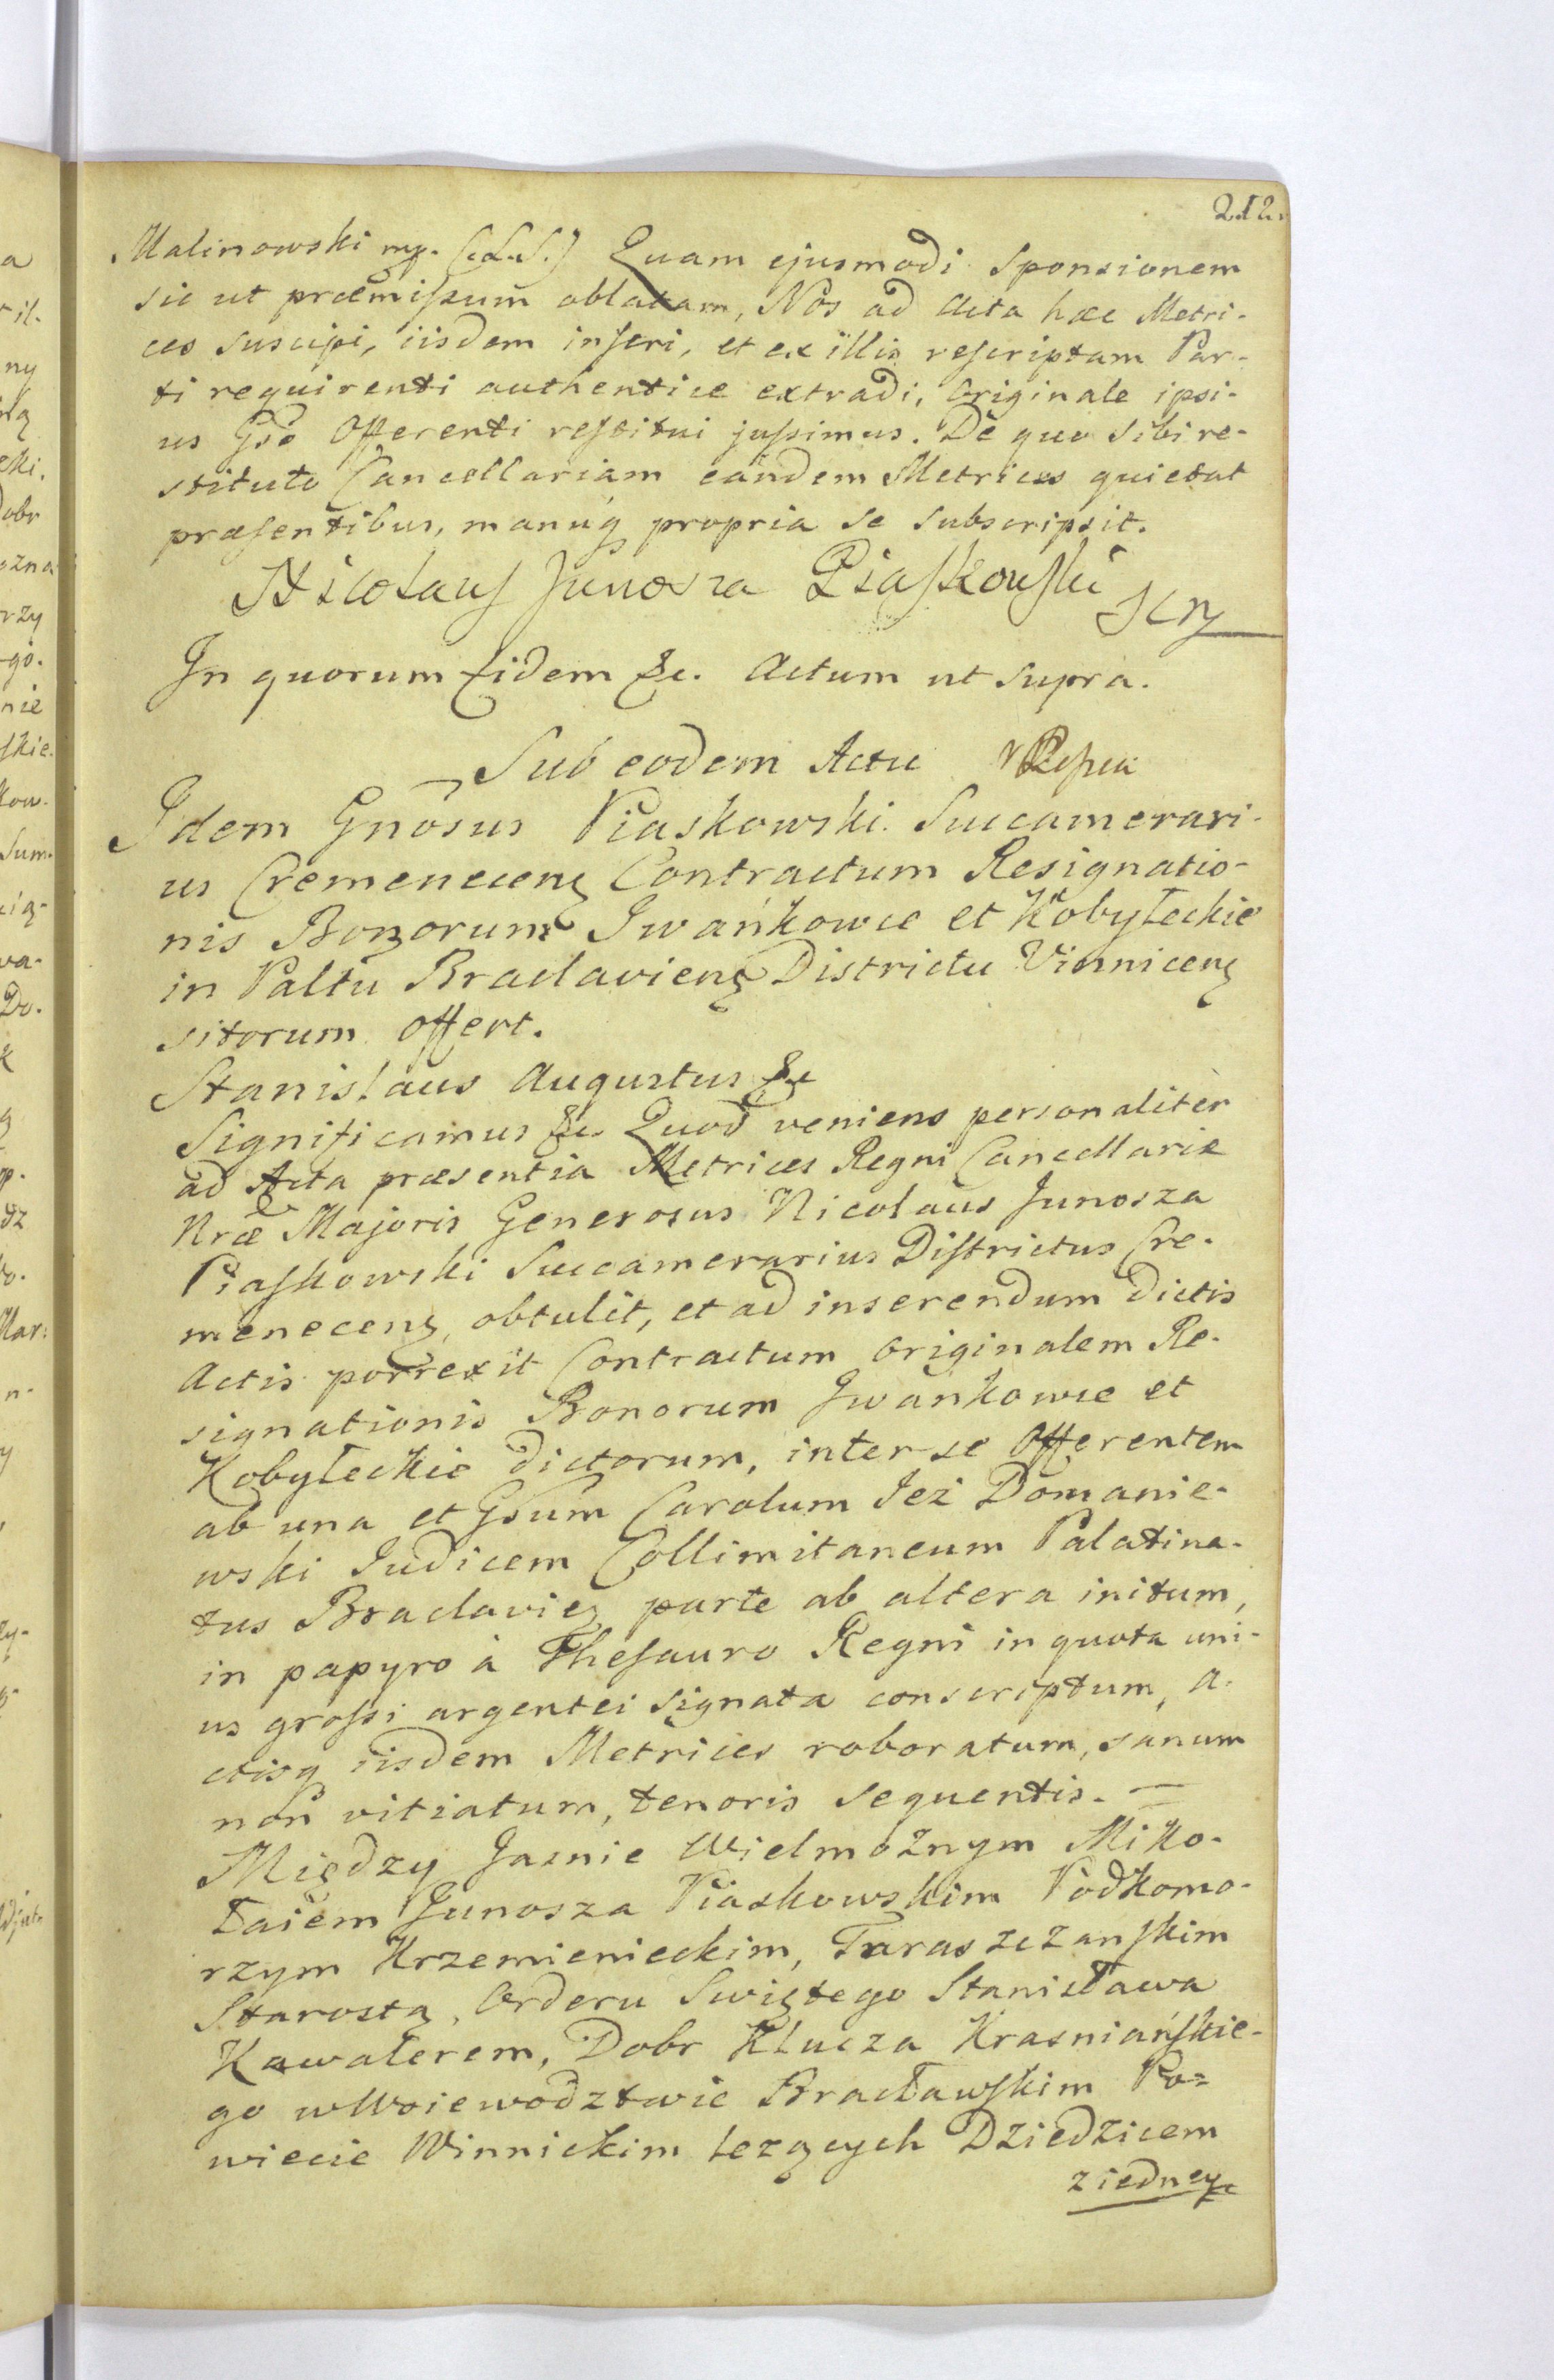 212.
Malinowski mp. (L.S.) Quam ejusmodi Sponsionem
sic ut præmißum oblatam, Nos ad Acta hæc Metri-
ces suscipi, iisdem inseri, et ex illis rescriptam Par-
ti requirenti authentice extradi, originale ipsi-
us Gso Offerenti restitui jußimus. De quo sibi re-
stituto Cancellariam eandem Metrices quietat
præsentibus, manuq propria se subscripsit.
Nicolaus Junosza Piaskowski
In quorum Fidem &c. Actum ut supra.
Sub eodem Actu
Idem Gnosus Piaskowski Succamerari-
us Cremenecens Contractum Resignatio-
nis Bonorum Iwańkowce et Kobyłeckie
in Paltu Braclaviens Districtu Vinnicens
sitorum offert.
Stanislaus Augustus &c
Significamus &c. Quod veniens personaliter
ad Acta præsentia Metrices Regni Cancellariæ
Nræ Majoris Generosus Nicolaus Junosza
Piaskowski Succamerarius Districtus Cre-
menecens, obtulit, et ad inserendum dictis
Actis porrexit Contractum originalem Re-
signationis Bonorum Iwańkowce et
Kobyłeckie dictorum, inter se Offerentem
ab una et Gsum Carolum Jeż Domanie-
wski Judicem Collimitaneum Palatina-
tus Braclavies parte ab altera initum,
in papyro à Thesauro Regni in quota uni-
us großi argentei signata conscriptum, A-
ctisq iisdem Metrices roboratum, sanum
non vitiatum, tenoris sequentis. —
Między Jasnie Wielmożnym Miko-
łaiem Junosza Piaskowskim Podkomo-
rzym Krzemienieckim, Taraszczanskim
Starostą, Orderu Swiętego Stanisława
Kawalerem, Dobr Klucza Krasniańskie-
go w Woiewodztwie Bracławskim Po=
wiecie Winnickim leżących Dziedzicem
z iedney